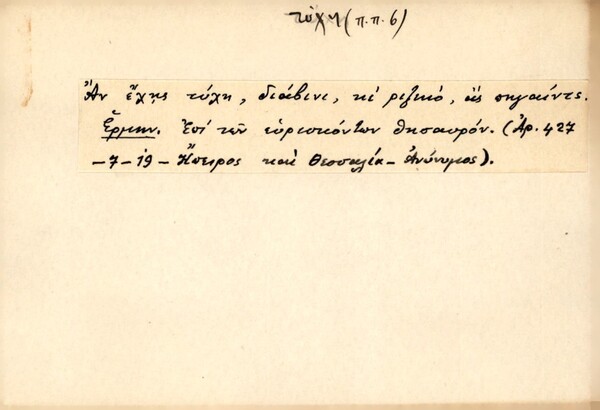 τύχη (π.π. 6)
Ἂν ἔχῃς τύχη, διάβινι, κὶ ριζικό, ἂς πηγαίντς.
Ἑρμην. Ἐπὶ τῶν εὑρισκόντων θησαυρόν. (Ἀρ. 427
-7-19- Ἤπειρος καὶ Θεσσαλία - Ἀνώνυμος).